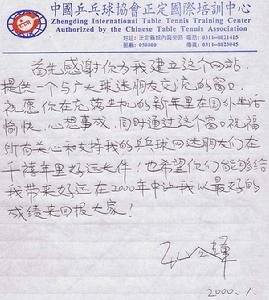 中國乒乓球協會正定國際培訓中心
Zhengding International Table Tennis Training Center
Authorized by the Chinese Table Tennis Association
郵編: 050800
首先感谢你为我建立这个网站,
提供一个与广大球迷朋友交流的窗口。
祝愿你在充满生机的新年里在国外生活
愉快,心想事成,同时通过这个窗口祝福
所有关心和支持我的乒乓球迷朋友们在
千禧年里好运长伴!也希望你们能够给
我带来好运在2000年中让我以最好的
成绩来回报大家!
2000.1.